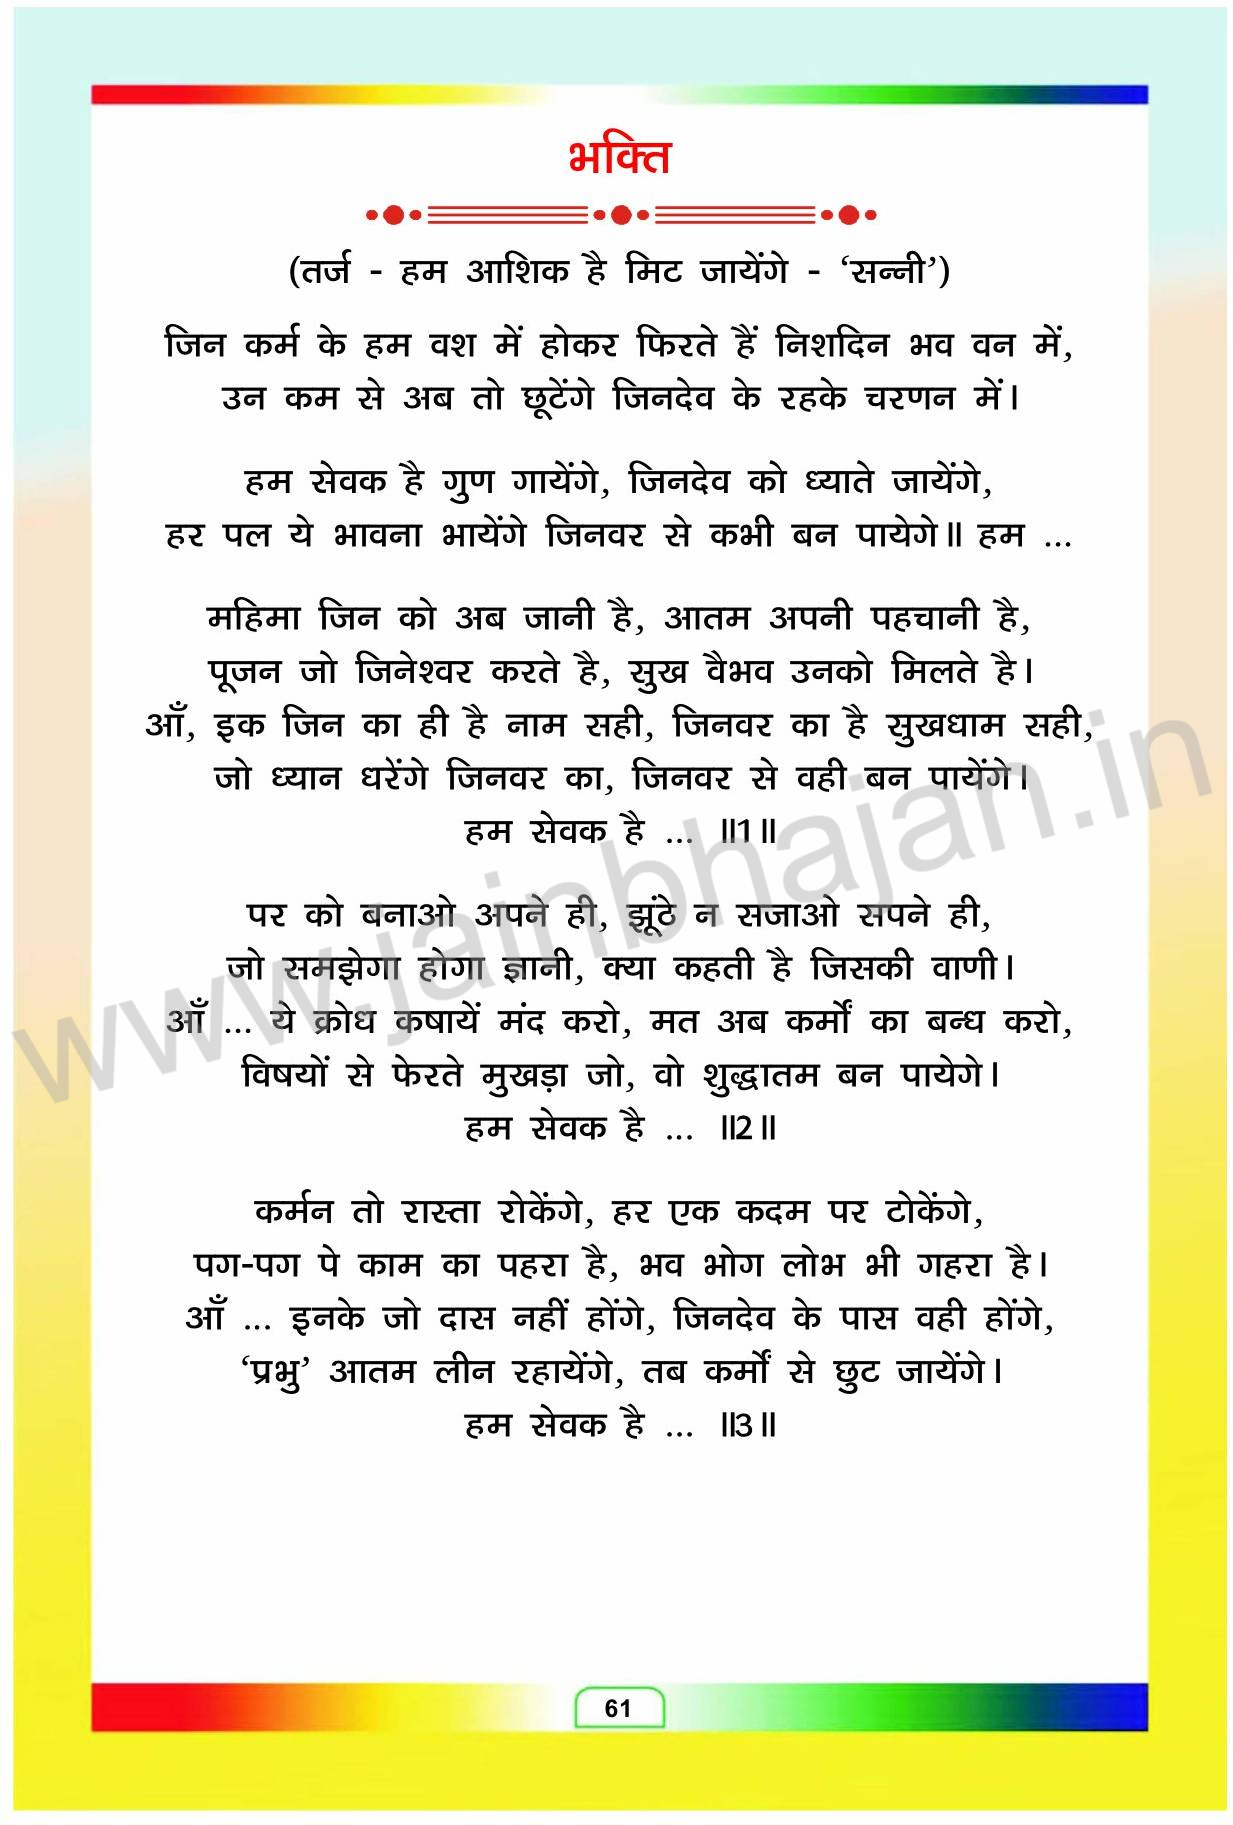 भक्ति
(तर्ज - हम आशिक है मिट जायेंगे - ‘सन्नी’)
जिन कर्म के हम वश में होकर फिरते हैं निशदिन भव वन में,
उन कम से अब तो छूटेंगे जिनदेव के रहके चरणन में।
हम सेवक है गुण गायेंगे, जिनदेव को ध्याते जायेंगे,
हर पल ये भावना भायेंगे जिनवर से कभी बन पायेगे॥ हम ...
महिमा जिन को अब जानी है, आतम अपनी पहचानी है,
पूजन जो जिनेश्वर करते है, सुख वैभव उनको मिलते है।
आँ, इक जिन का ही है नाम सही, जिनवर का है सुखधाम सही,
जो ध्यान धरेंगे जिनवर का, जिनवर से वही बन पायेंगे।
हम सेवक है ... ॥1॥
पर को बनाओ अपने ही, झूंठे न सजाओ सपने ही,
जो समझेगा होगा ज्ञानी, क्या कहती है जिसकी वाणी।
आँ ... ये क्रोध कषायें मंद करो, मत अब कर्मों का बन्ध करो,
विषयों से फेरते मुखड़ा जो, वो शुद्धातम बन पायेगे।
हम सेवक है ... ॥2॥
कर्मन तो रास्ता रोकेंगे, हर एक कदम पर टोकेंगे,
पग-पग पे काम का पहरा है, भव भोग लोभ भी गहरा है।
आँ ... इनके जो दास नहीं होंगे, जिनदेव के पास वही होंगे,
‘प्रभु’ आतम लीन रहायेंगे, तब कर्मों से छुट जायेंगे।
हम सेवक है ... ॥3॥
www.jainbhajan.in
61